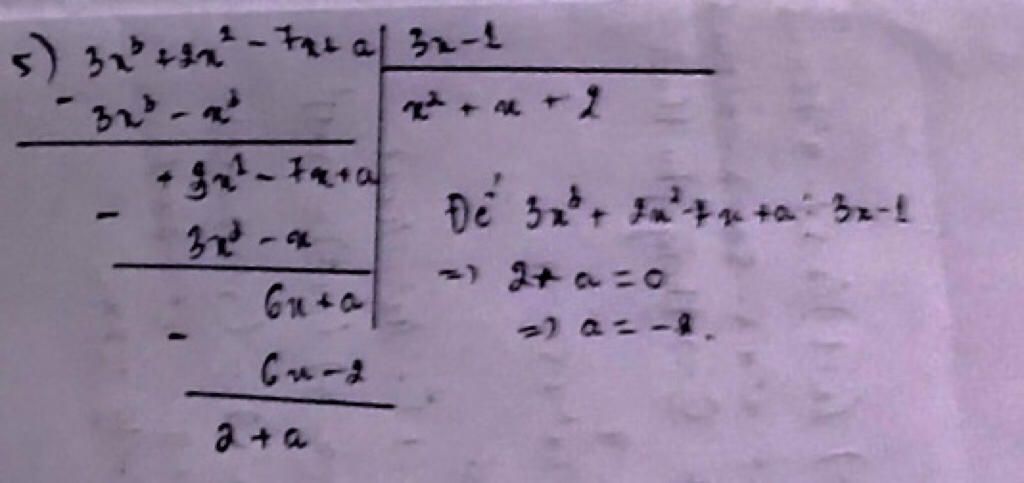 5) 3x³ + 2x² - 7x + a | 3x - 1
- 3x³ - x² | x² + x + 2
+ 3x² - 7x + a
- 3x² - x
6x + a
- 6x - 2
2 + a
Để 3x³ + 2x² - 7x + a ⋮ 3x - 1
=> 2 + a = 0
=> a = -2.